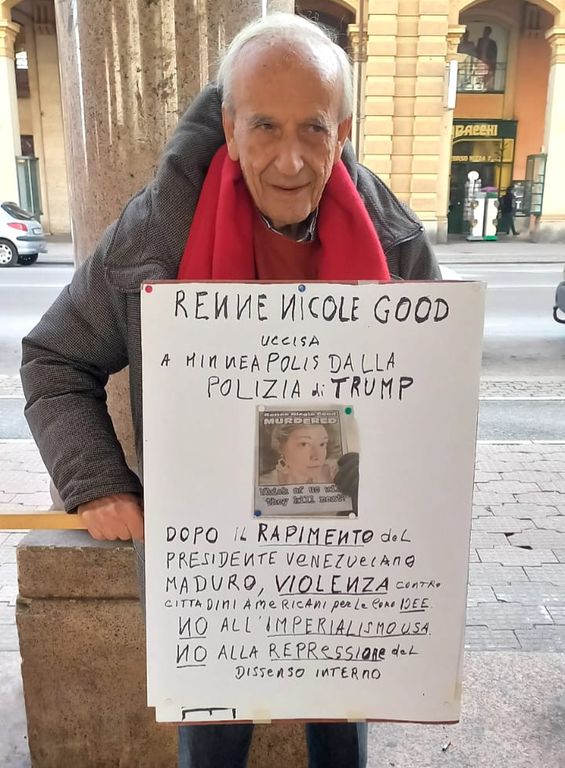 RENNE NICOLE GOOD
UCCISA
A MINNEAPOLIS DALLA
POLIZIA di TRUMP
Renee Nicole Good
MURDERED
Which of us wi
they kill next?
DOPO IL RAPIMENTO del
PRESIDENTE VENEZUELANO
MADURO, VIOLENZA contro
CITTADINI AMERICANI per le loro IDEE
NO ALL'IMPERIALISMO USA
NO ALLA REPRESSIONE del
DISSENSO INTERNO